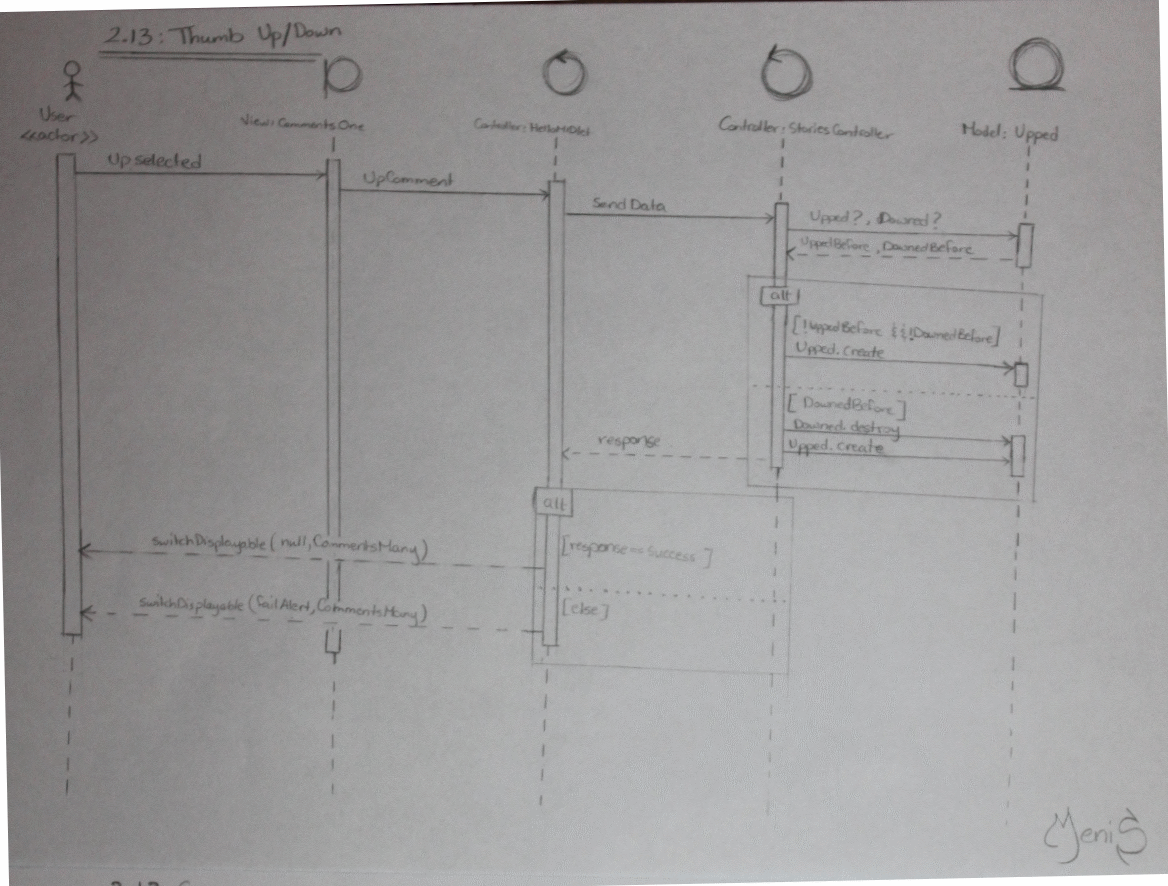 2.13: Thumb Up/Down
User
<<actor>>
View: CommentsOne
Controller: StoriesController
Model: Upped
Up selected
UpComment
SendData
Upped?, Downed?
UppedBefore, DownedBefore
alt
[!UppedBefore &&!DownedBefore]
Upped.create
[DownedBefore]
Downed.destroy
Upped.create
response
alt
switchDisplayable(null,CommentsMany)
[response==Success]
switchDisplayable(failAlert,CommentsMany)
[else]
MeniS